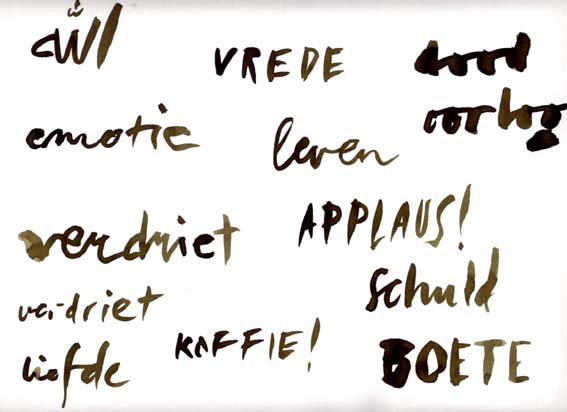 VREDE
dood
oorlog
emotie
leven
APPLAUS!
verdriet
schuld
verdriet
KOFFIE!
BOETE
liefde